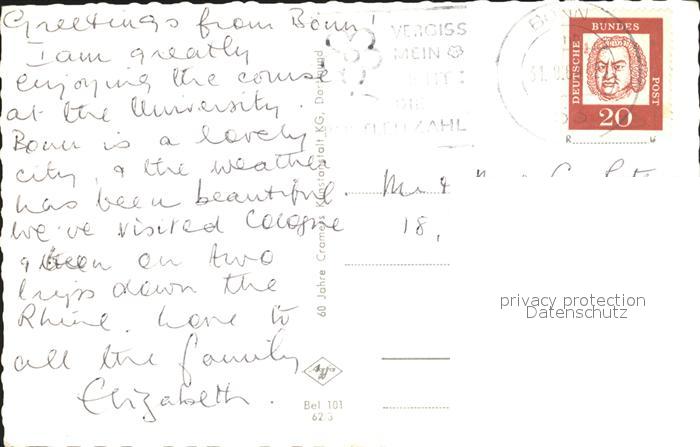 Greetings from Bonn!
I am greatly
enjoying the course
at the University.
Bonn is a lovely
city, & the weather
has been beautiful.
We've visited Cologne
& been on two
trips down the
Rhine. Love to
all the family
Elizabeth.
60 Jahre Cramers Kunstanstalt KG, Dortmund
Agfa
Bel 101
62 3
VERGISS
MEIN
NICHT
DIE
POSTLEITZAHL
BONN
DEUTSCHE BUNDES POST
20
Mr &
18,
privacy protection
Datenschutz